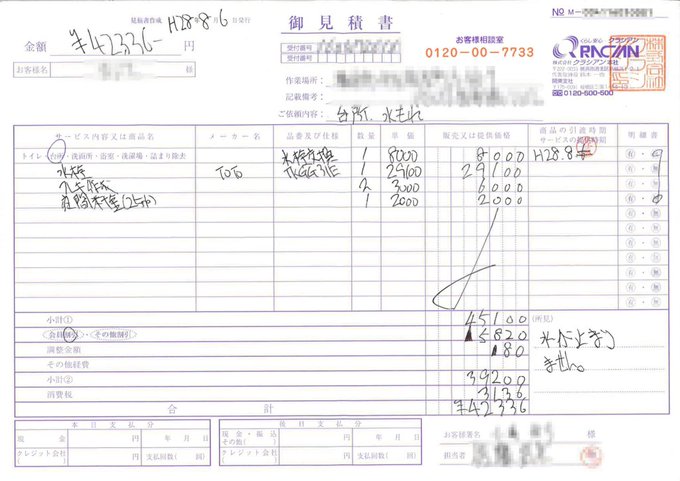 見積書作成 H28年8月6日発行
御見積書
№ M-
金額 ¥42336- 円
お客様名 様
受付番号
受付番号
お客様相談室
0120-00-7733
くらし安心 クラシアン
QRACIAN
株式会社クラシアン本社
関東支社
0120-500-500
作業場所:
記載備考:
ご依頼内容: 台所、水もれ
サービス内容又は商品名 メーカー名 品番及び仕様 数量 単価 販売又は提供価格 商品の引渡時期 サービスの提供時期 明細書
トイレ・台所・洗面所・浴室・洗濯場・詰まり除去 水栓交換 1 8000 8000 H28.8 有・無
水栓 TOTO TKGG31E 1 29100 29100 有・無
2 3000 6000 有・無
1 2000 2000 有・無
有・無
有・無
有・無
有・無
有・無
有・無
小計① 45100 (所見)
会員割引・その他割引 ▲5820 水が止まり
調整金額 ▲80 ません。
その他経費
小計② 39200
消費税 3136
合計 ¥42336
本日支払分 後日支払分
現金 円 年 月 日 現金・振込 その他( ) 円 年 月 日
クレジット会社 ( ) 円 支払回数( 回) クレジット会社 ( ) 円 支払回数( 回)
お客様署名 様
担当者